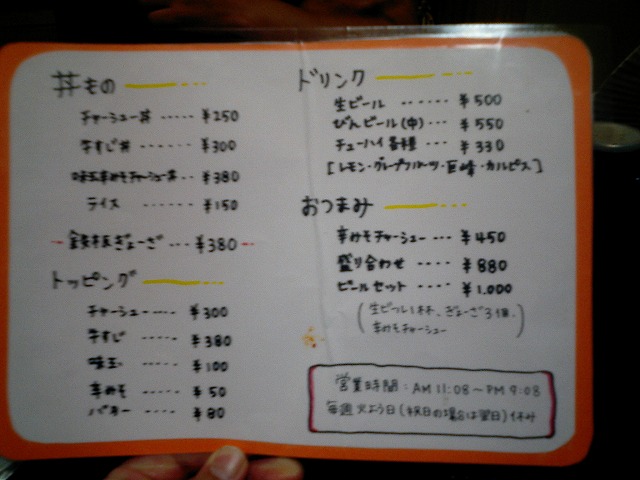 丼もの
チャーシュー丼 ····· ¥250
牛すじ丼 ····· ¥300
味玉辛みそチャーシュー丼 ·· ¥380
ライス ····· ¥150
鉄板ぎょーざ ··· ¥380
トッピング
チャーシュー ···· ¥300
牛すじ ····· ¥380
味玉 ····· ¥100
辛みそ ····· ¥50
バター ····· ¥80
ドリンク
生ビール ······ ¥500
びんビール(中) ···· ¥550
チューハイ各種 ···· ¥330
[レモン・グレープフルーツ・巨峰・カルピス]
おつまみ
辛みそチャーシュー ··· ¥450
盛り合わせ ···· ¥880
ビールセット ···· ¥1.000
(生ビール1杯、ぎょーざ3個、
辛みそチャーシュー)
営業時間:AM 11:08~PM 9:08
毎週火よう日(祝日の場合は翌日)休み